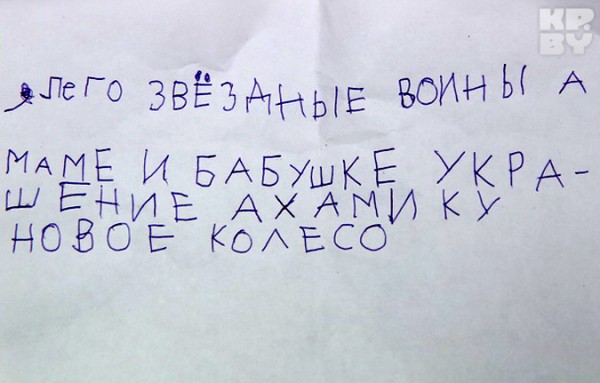 KP.BY
ЛЕГО ЗВЁЗДНЫЕ ВОИНЫ А
МАМЕ И БАБУШКЕ УКРА-
ШЕНИЕ АХАМИКУ
НОВОЕ КОЛЕСО